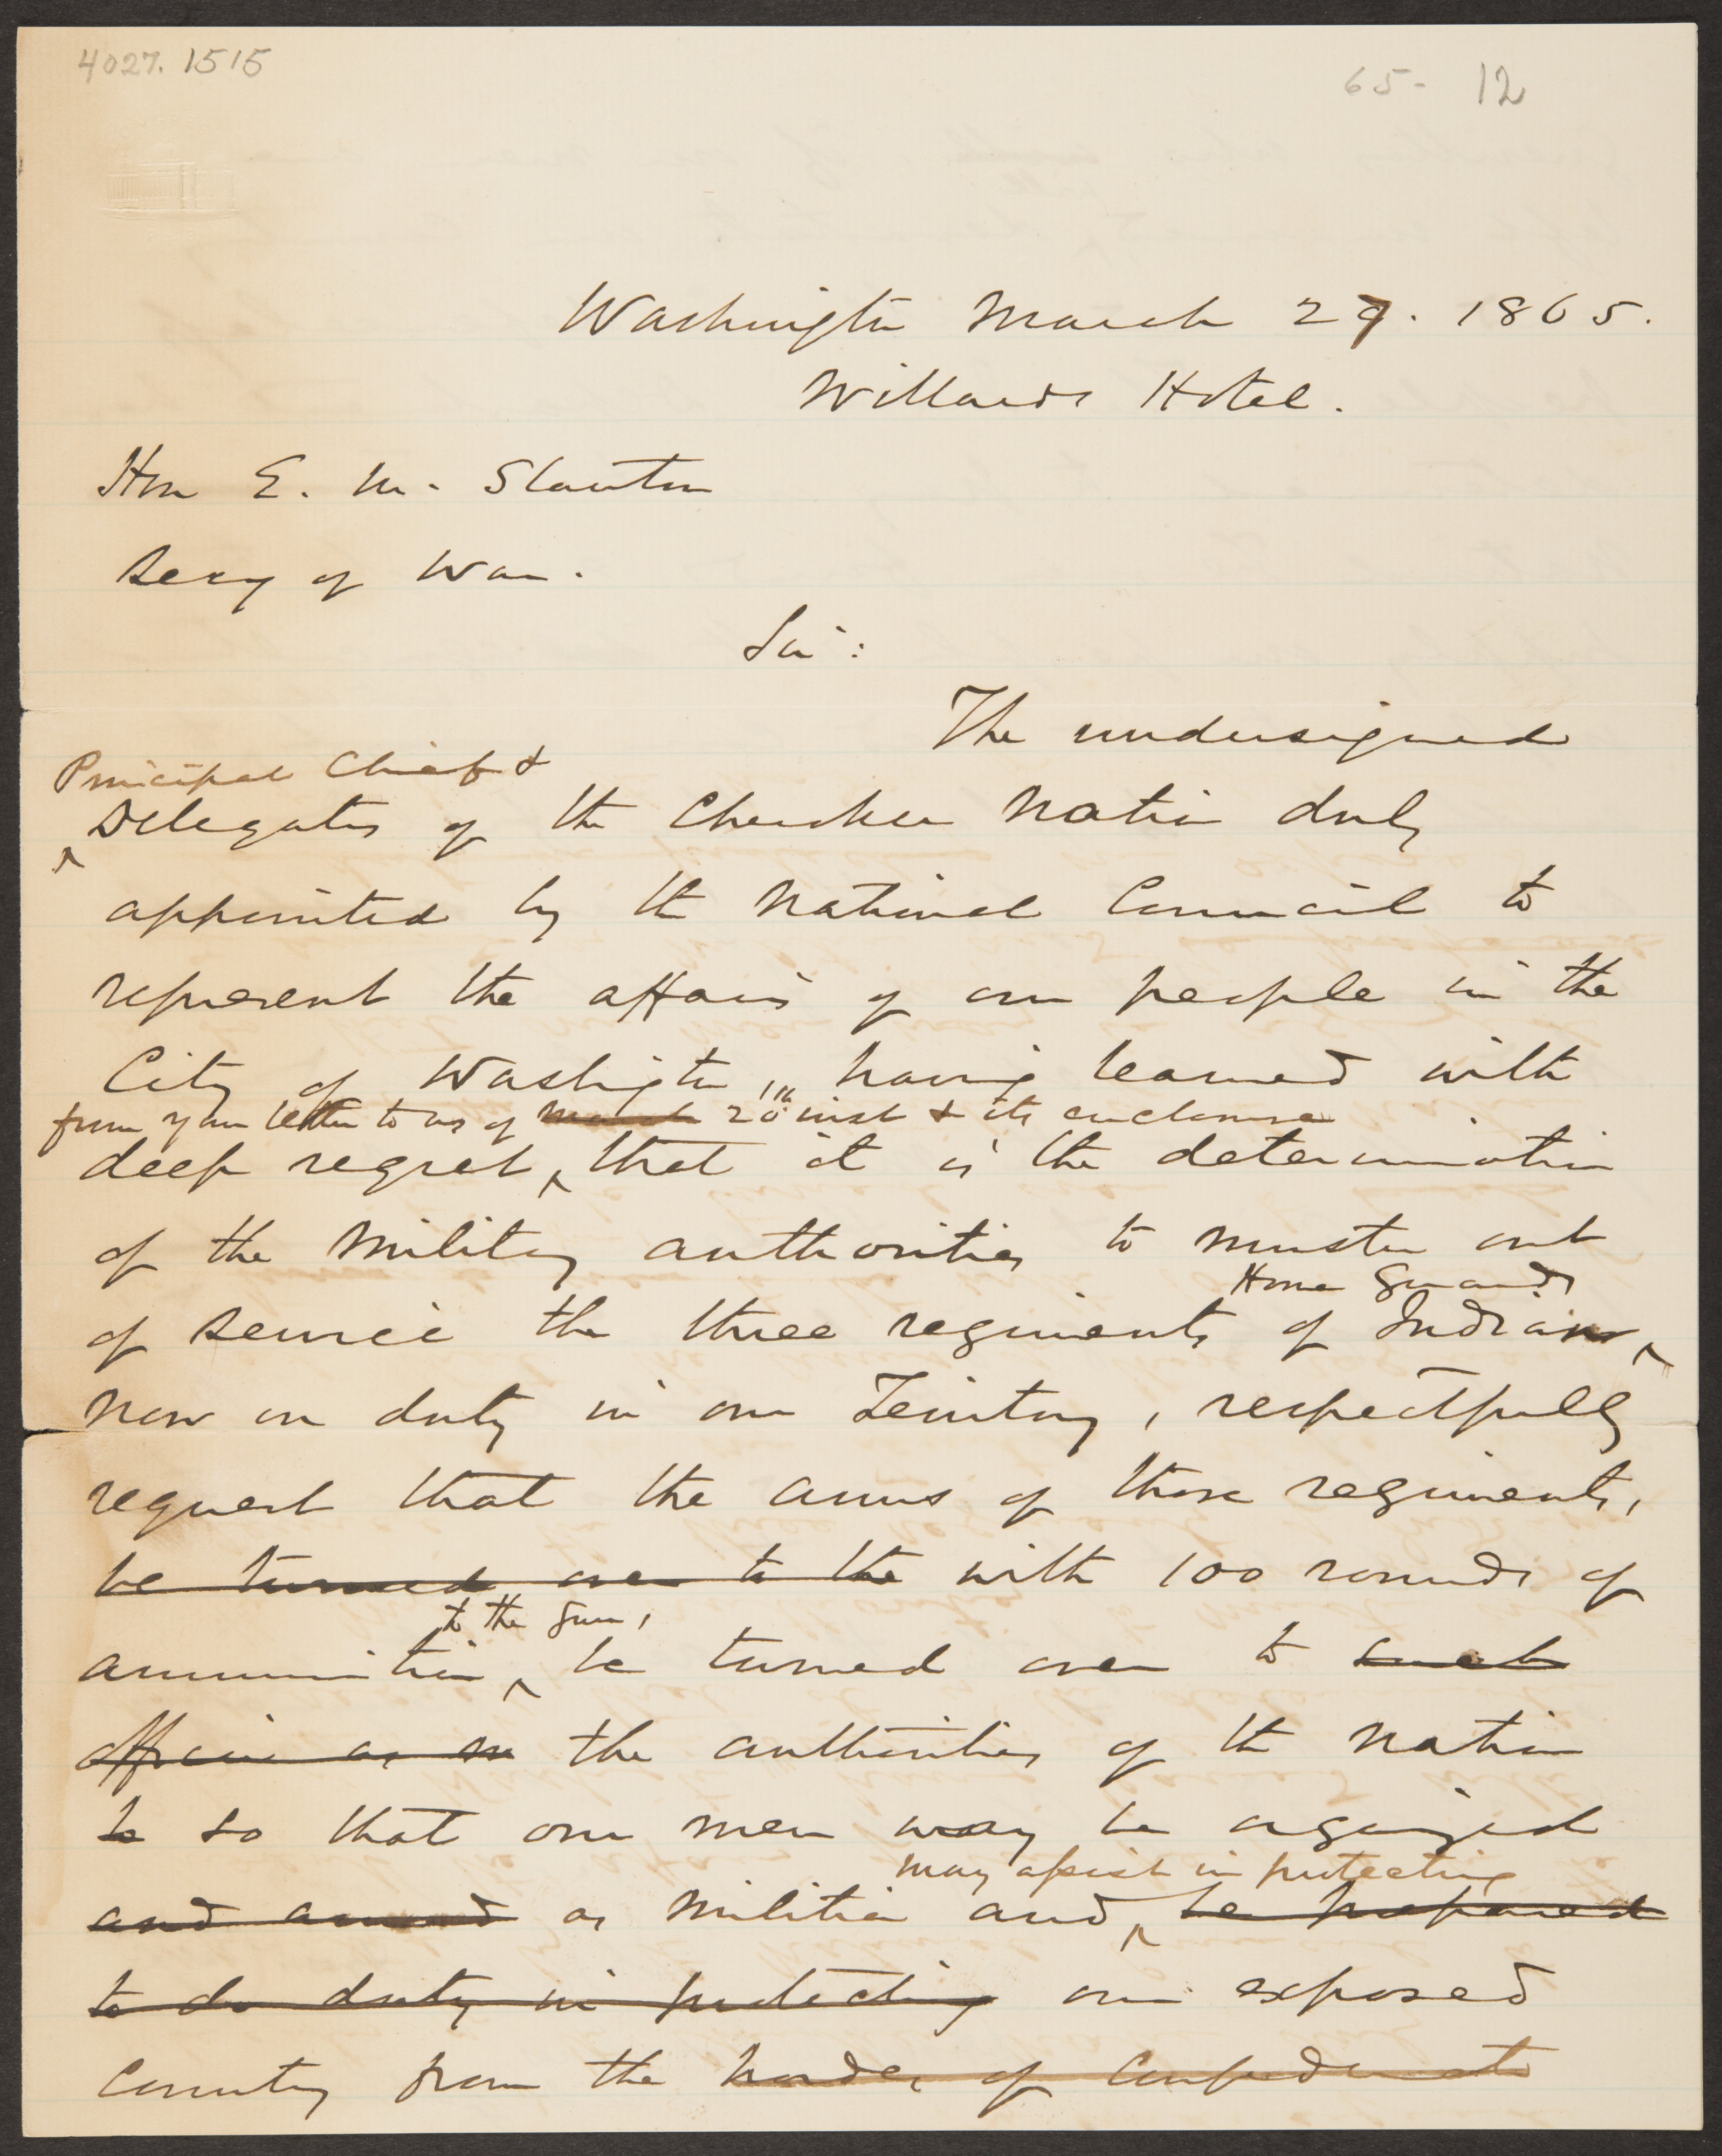 4027.1515
65- 12
Washington March 27. 1865.
Willards Hotel.
Hon E. M. Stanton
Secy of War.
Sir:
The undersigned
Principal Chief &
Delegates of the Cherokee Nation duly
appointed by the National Council to
represent the affairs of our people in the
City of Washington, having learned with
from your letter to us of March 20th inst & its enclosure
deep regret, that it is the determination
of the Military authorities to muster out
Home Guards
of service the three regiments of Indians
now on duty in our Territory, respectfully
request that the arms of those regiments,
be turned over to the with 100 rounds of
to the Gun,
ammunition be turned over to such
officers as we the authorities of the Nation
to so that our men may be organized
may assist in protecting
and armed as militia and be prepared
to do duty in protecting our exposed
Country from the hordes of Confederate